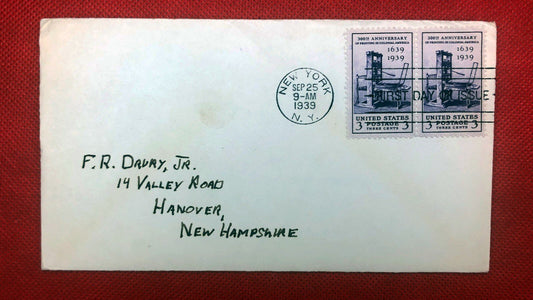 NEW YORK
SEP 25
9-AM
1939
N.Y.
300TH ANNIVERSARY
OF PRINTING IN COLONIAL AMERICA
1639
1939
UNITED STATES
3 POSTAGE 3
THREE CENTS
300TH ANNIVERSARY
OF PRINTING IN COLONIAL AMERICA
1639
1939
UNITED STATES
3 POSTAGE 3
THREE CENTS
FIRST DAY OF ISSUE
F.R. DAURY, JR.
14 VALLEY ROAD
HANOVER,
NEW HAMPSHIRE